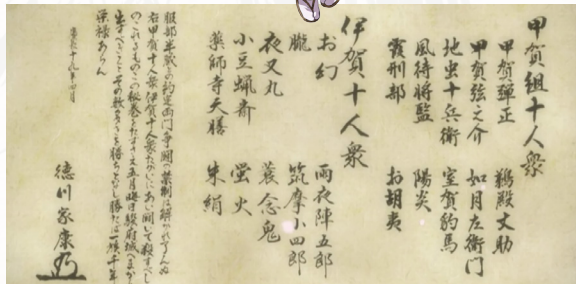 甲賀組十人衆
甲賀弾正 鵜殿丈助
甲賀弦之介 如月左衛門
地虫十兵衛 室賀豹馬
風待将監 陽炎
霞刑部 お胡夷
伊賀十人衆
お幻 雨夜陣五郎
朧 筑摩小四郎
夜叉丸 蓑念鬼
小豆蝋斎 蛍火
薬師寺天膳 朱絹
服部半蔵との約定両門争闘の禁制は解かれてんぬ
右甲賀十人衆伊賀十人衆たがいにあい闘いて殺すべし
のこれるものこの秘巻をたずさえ五月晦日駿府城へまか
出ずべきこと その数多きを勝ちとなし勝たば一族千年
栄禄あらん
慶長十九年四月
徳川家康